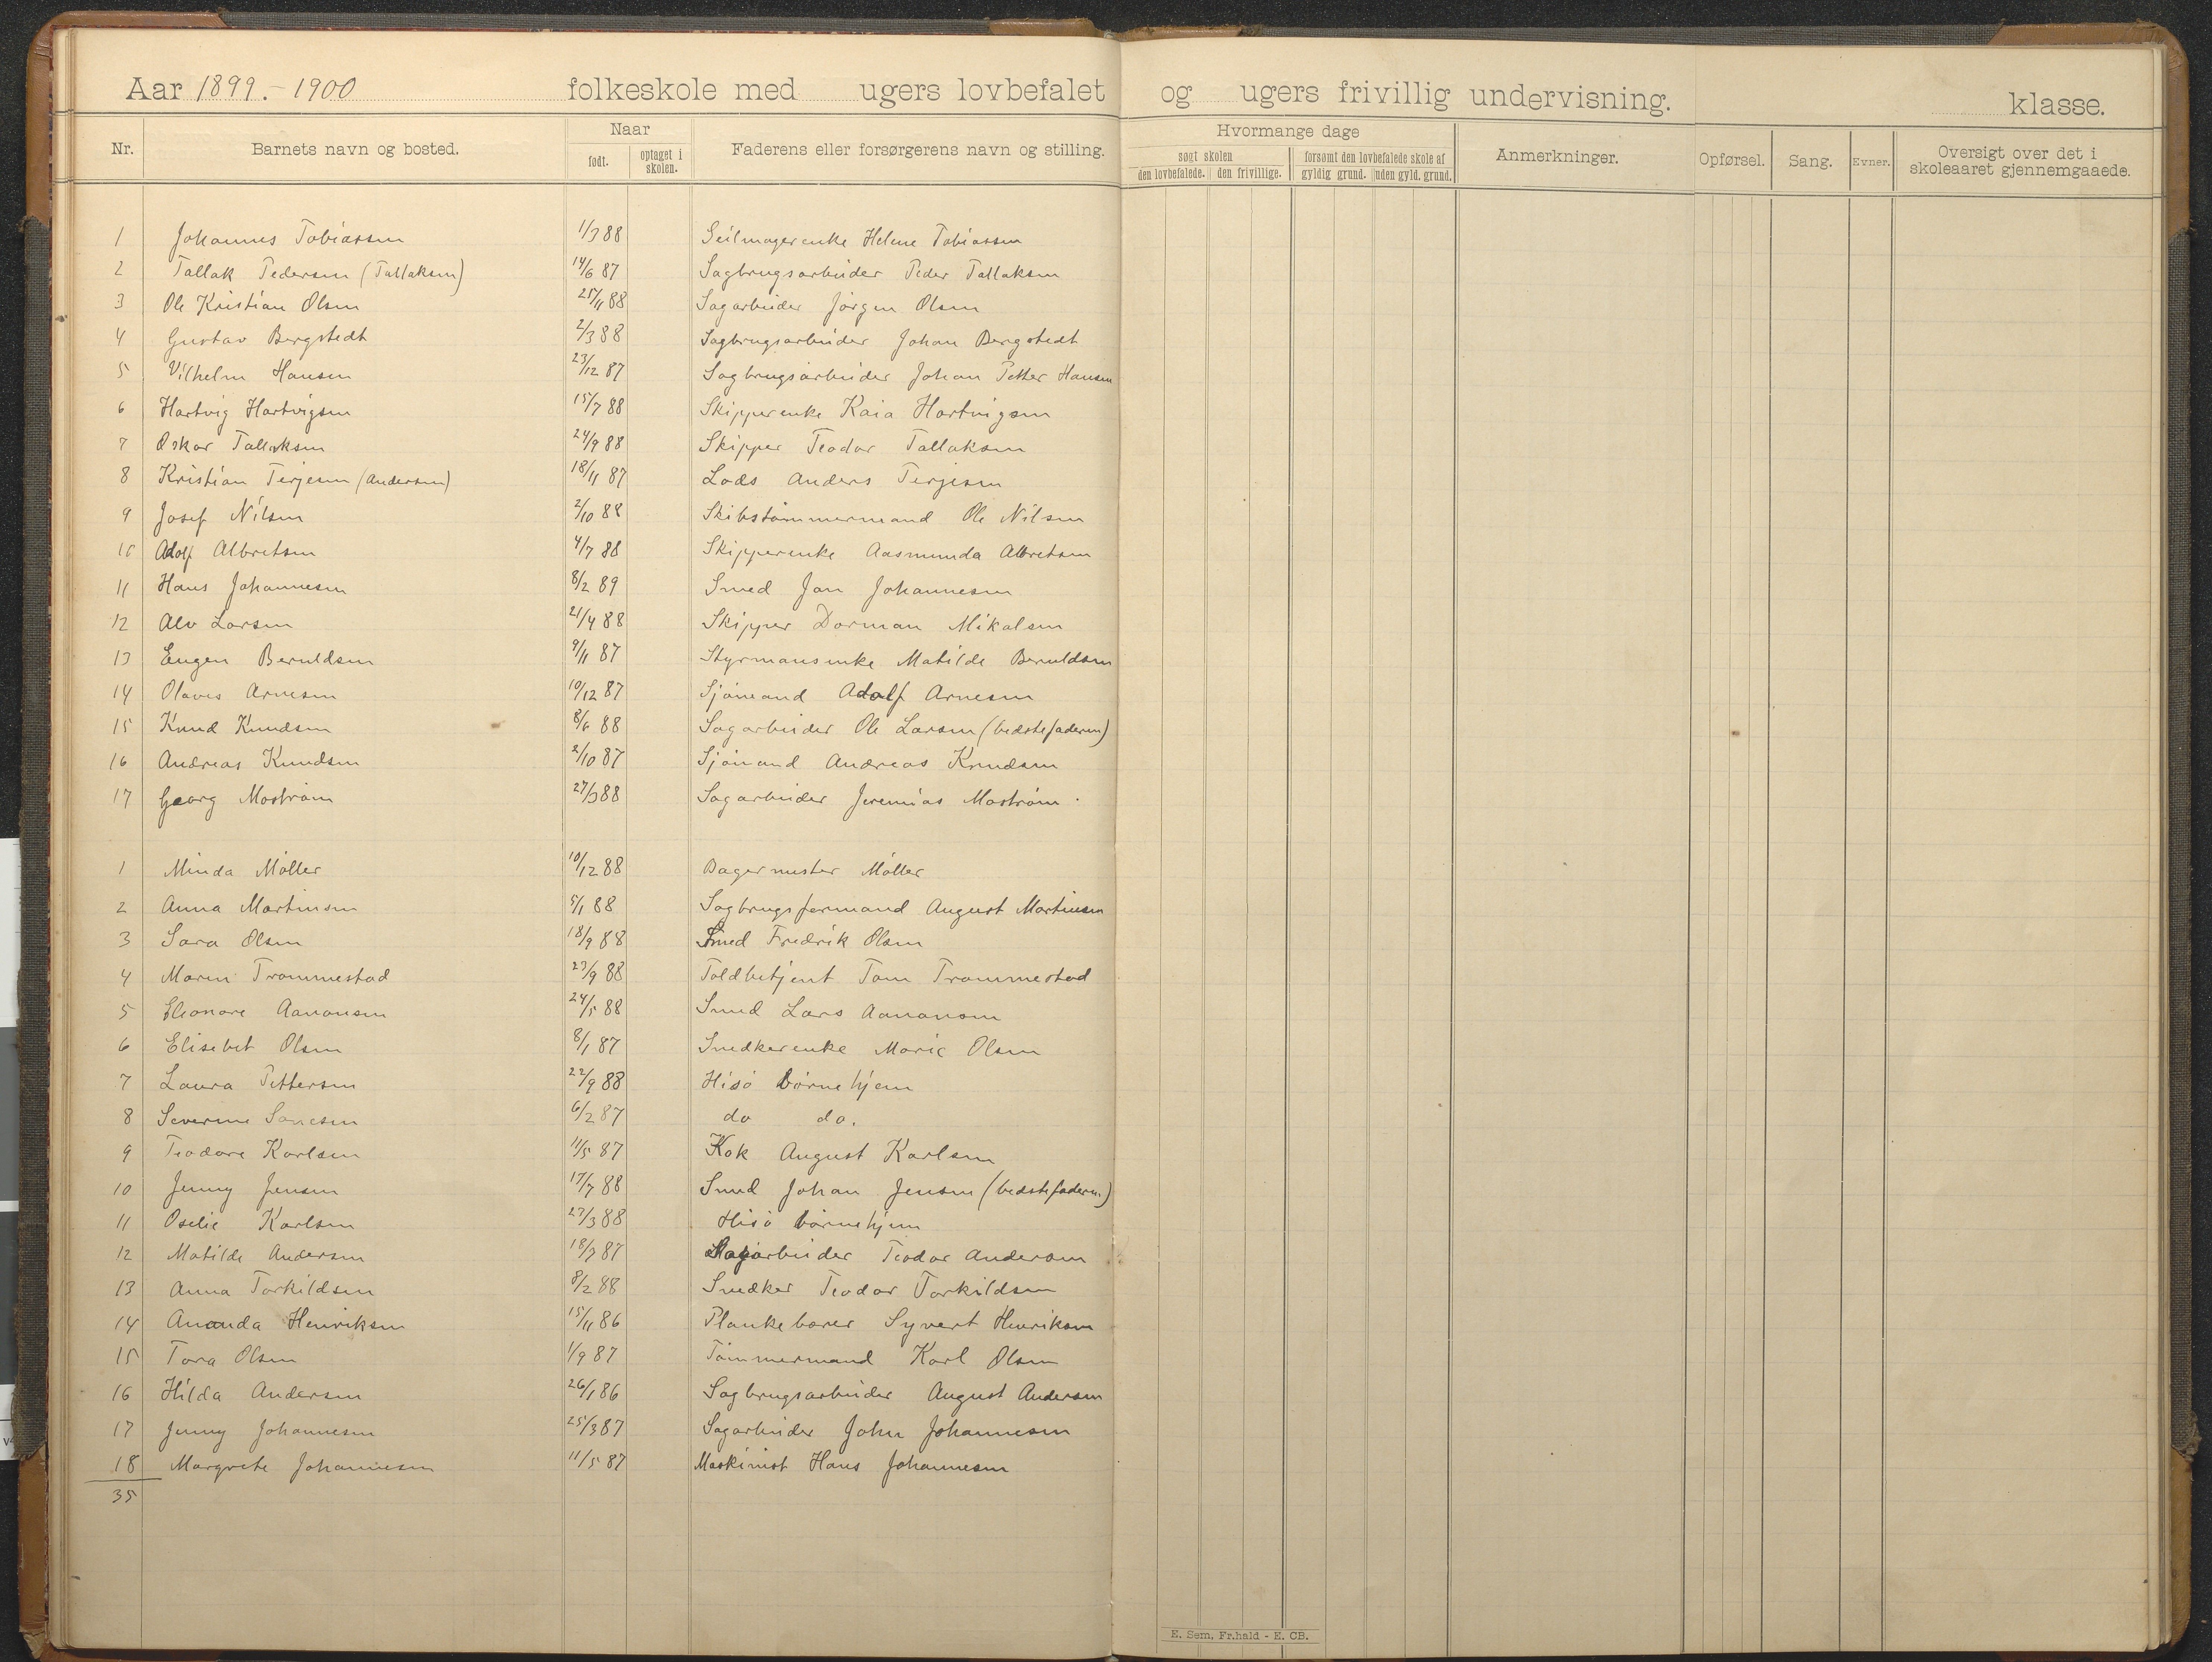 Aar 1899.-1900 folkeskole med ugers lovbefalet og ugers frivillig undervisning. klasse.
Nr. Barnets navn og bosted. Naar født. optaget i skolen. Faderens eller forsørgerens navn og stilling. Hvormange dage søgt skolen den lovbefalede. den frivillige. forsømt den lovbefalede skole af gyldig grund. uden gyld. grund. Anmerkninger. Opførsel. Sang. Evner. Oversigt over det i skoleaaret gjennemgaaede.
1 Johannes Tobiassen 1/3 88 Seilmagerenke Helene Tobiassen
2 Tallak Pedersen (Tallaksen) 14/6 87 Sagbrugsarbeider Peder Tallaksen
3 Ole Kristian Olsen 25/11 88 Sagarbeider Jörgen Olsen
4 Gustav Bergstedt 2/3 88 Sagbrugsarbeider Johan Bergstedt
5 Vilhelm Hansen 23/12 87 Sagbrugsarbeider Johan Petter Hansen
6 Hartvig Hartvigsen 15/7 88 Skipperenke Kaia Hartvigsen
7 Oskar Tallaksen 24/9 88 Skipper Teodor Tallaksen
8 Kristian Terjesen (Andersen) 18/11 87 Lods Anders Terjesen
9 Josef Nilsen 2/10 88 Skibstømmermand Ole Nilsen
10 Adolf Albretsen 4/7 88 Skipperenke Aasmunda Albretsen
11 Hans Johannesen 8/2 89 Smed Jan Johannesen
12 Alv Larsen 21/4 88 Skipper Dorman Mikalsen
13 Eugen Beruldsen 9/11 87 Styrmansenke Matilde Beruldsen
14 Olaves Arnesen 10/12 87 Sjömand Adolf Arnesen
15 Knud Knudsen 8/6 88 Sagarbeider Ole Larsen (bedstefaderen)
16 Andreas Knudsen 2/10 87 Sjömand Andreas Knudsen
17 Georg Moström 27/3 88 Sagarbeider Jeremias Moström.
1 Minda Möller 10/12 88 Bagermester Möller
2 Anna Martinsen 5/1 88 Sagbrugsformand August Martinsen
3 Sara Olsen 18/9 88 Smed Fredrik Olsen
4 Maren Trommestad 23/9 88 Toldbetjent Tom Trommestad
5 Eleonore Aanonsen 24/5 88 Smed Lars Aanonsen
6 Elisebet Olsen 8/1 87 Snedkerenke Marie Olsen
7 Laura Pettersen 22/9 88 Hisö börnehjem
8 Severine 6/2 87 do do.
9 Teodore Karlsen 11/5 87 Kok August Karlsen
10 Jenny Jensen 17/7 88 Smed Johan Jensen (bedstefaderen)
11 Oselie Karlsen 27/3 88 Hisö börnehjem
12 Matilde Andersen 18/7 87 Sagarbeider Teodor Andersen
13 Anna Torkildsen 8/2 88 Snedker Teodor Torkildsen
14 Ananda Henriksen 15/11 86 Plankebærer Syvert Henriksen
15 Tora Olsen 1/9 87 Tömmermand Karl Olsen
16 Hilda Andersen 26/1 86 Sagbrugsarbeider August Andersen
17 Jenny Johannesen 25/3 87 Sagarbeider John Johannesen
18 Margrete Johannesen 11/5 87 Maskinist Hans Johannesen
35
E. Sem, Fr.hald - E. CB.